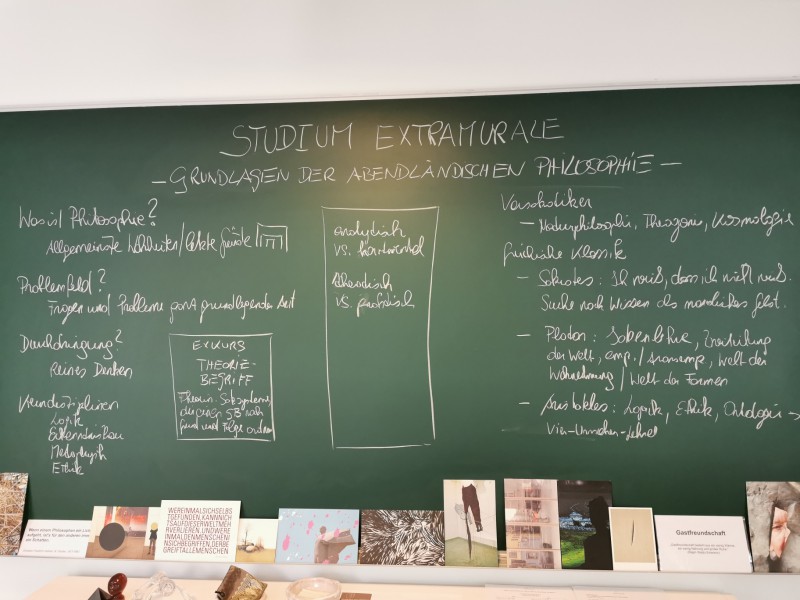 STUDIUM EXTRAMURALE
— GRUNDLAGEN DER ABENDLÄNDISCHEN PHILOSOPHIE —
Was ist Philosophie?
Allgemeinste Wahrheiten / letzte Gründe
Problemfeld?
Fragen und Probleme ganz grundlegender Art
Durchdringung?
Reines Denken
Kerndisziplinen
Logik
Erkenntnistheo
Metaphysik
Ethik
EXKURS
THEORIE-
BEGRIFF
Theorien: Satzsysteme,
deren
Grund und Folge ordnen
analytisch
vs. kontinental
theoretisch
vs. praktisch
Vorsokratiker
— Naturphilosophie, Theogonie, Kosmologie
Griechische Klassik
- Sokrates: Ich weiß, dass ich nicht weiß.
Suche nach Wissen als
- Platon: Ideenlehre, Zweiteilung
der Welt, emp. / Welt der
Wahrnehmung / Welt der Formen
- Aristoteles: Logik, Ethik, Ontologie →
Vier-Ursachen-Lehre
Wenn einem Philosophen ein Licht
aufgeht, ist's für den anderen immer
ein Schatten.
WER EINMAL SICH SELBS
T GEFUNDEN, KANN NICH
TS AUF DIESER WELT MEH
R VERLIEREN. UND WER E
INMAL DEN MENSCHEN I
N SICH BEGRIFFEN, DER BE
GREIFT ALLE MENSCHEN
Gastfreundschaft